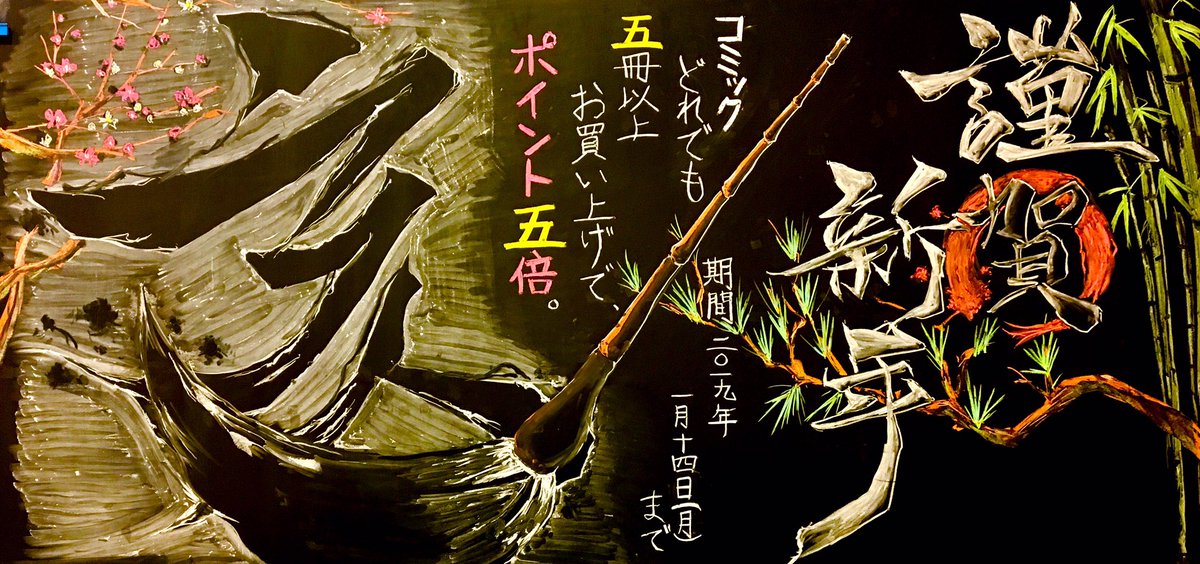 謹賀
新年
コミック
どれでも
五冊以上
お買い上げで、
ポイント五倍。
期間 二〇一九年
一月十四日(月)
まで
亥